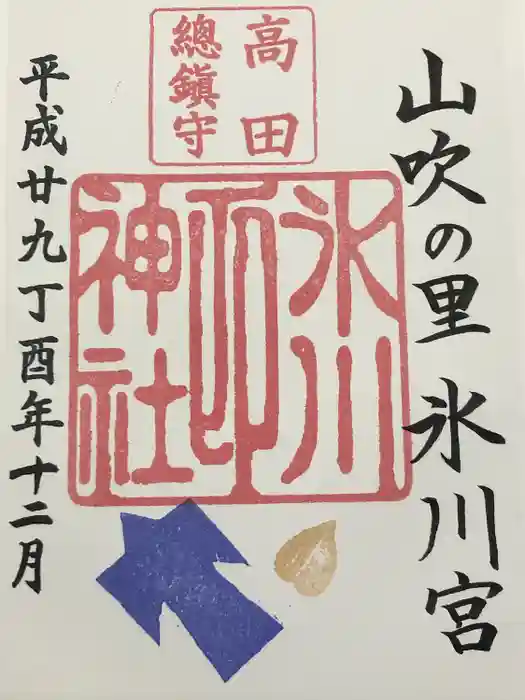 山吹の里 氷川宮
高田
總鎮守
氷川
神社
印
平成廿九丁酉年十二月